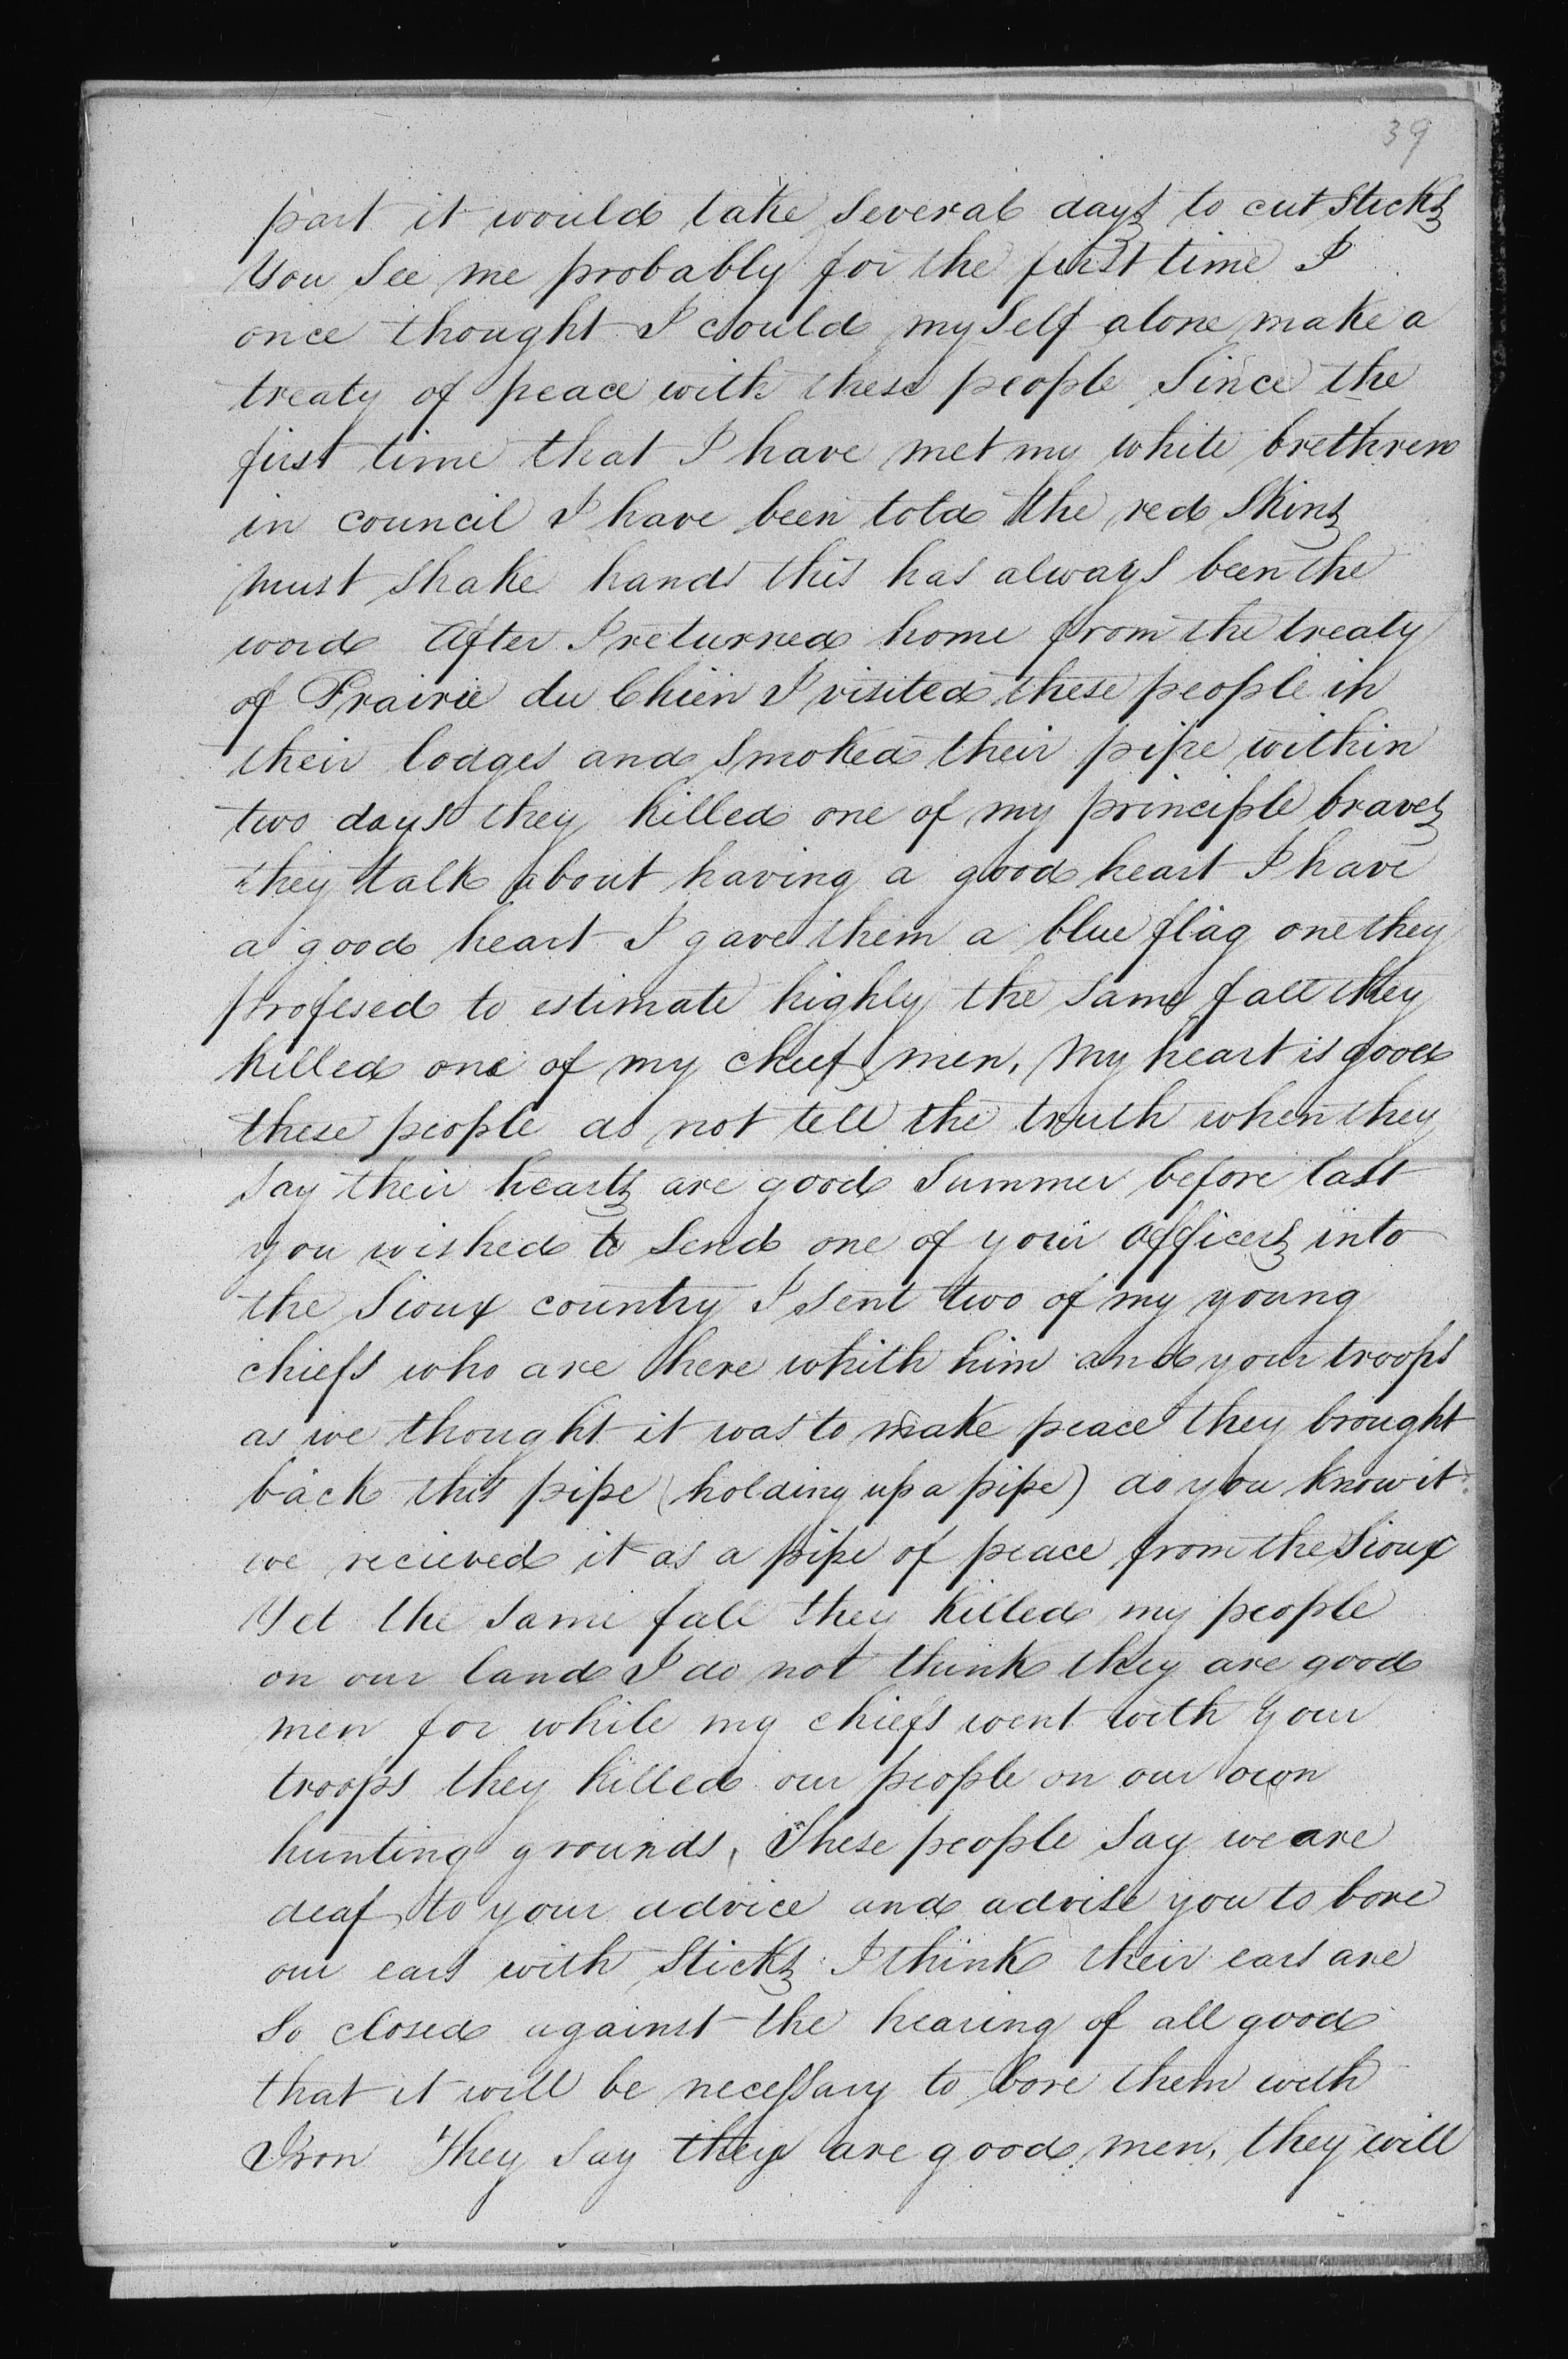 39
part it would take several days to cut sticks
You see me probably for the first time I
once thought I could myself alone make a
treaty of peace with these people Since the
first time that I have met my white brethren
in council I have been told the red skins
must shake hands this has always been the
word After I returned home from the treaty
of Prairie du Chien I visited these people in
their lodges and smoked their pipe within
two days they killed one of my principle braves
they talk about having a good heart I have
a good heart I gave them a blue flag one they
profesed to estimate highly the same fall they
killed one of my chief men, My heart is good
these people do not tell the truth when they
say their hearts are good Summer before last
you wished to send one of your officers into
the Sioux country I sent two of my young
chiefs who are here whith him and your troops
as we thought it was to make peace they brought
back this pipe (holding up a pipe) do you know it
we recieved it as a pipe of peace from the Sioux
Yet the same fall they killed my people
on our land I do not think they are good
men for while my chiefs went with your
troops they killed our people on our own
hunting grounds, These people say we are
deaf to your advice and advise you to bore
our ears with sticks I think their ears are
so closed against the hearing of all good
that it will be necessary to bore them with
Iron They say they are good men, they will